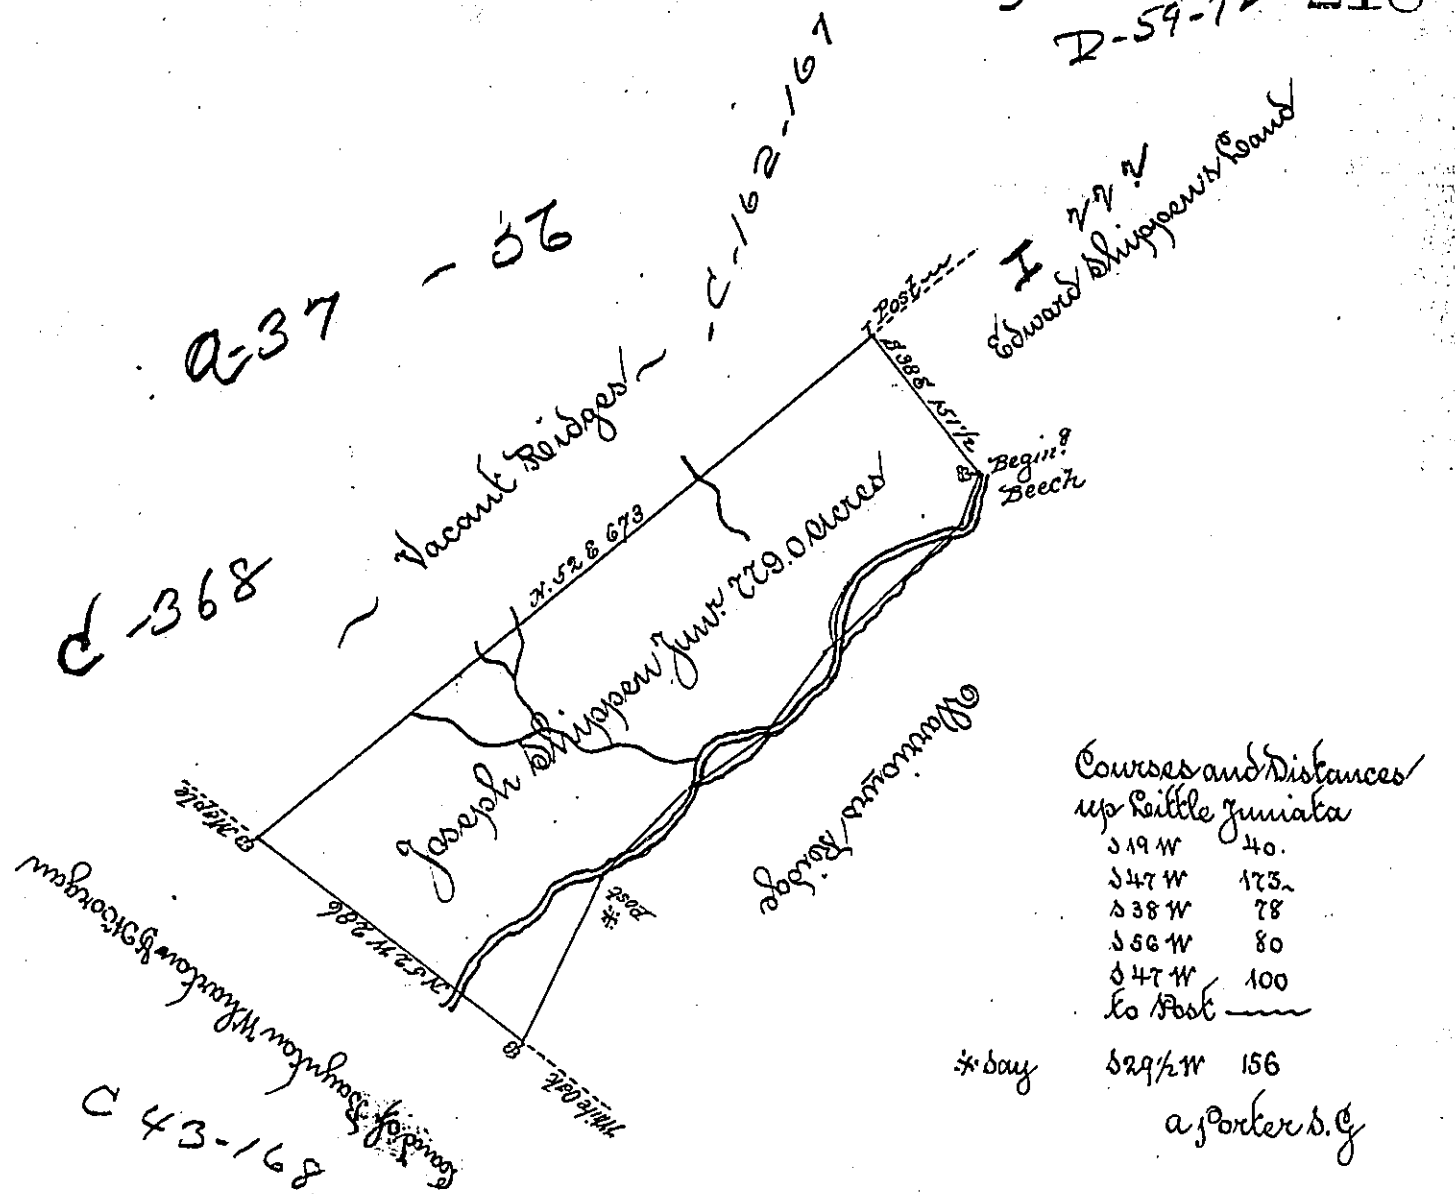 D-59-
C-162-167
a-37 - 36
I
Edward Shippen's Land
Post
S 38 E 151 1/2
Begin.g
Beech
~ Vacant Ridges ~
N. 52 E 673
C-368
Joseph Shippen Junr. 779.0 acres
Warriours Ridge
Maple
N 52 W 286
* Post
White Oak
Land of Baynton Wharton & Morgan
C 43-168
Courses and Distances
up Little Juniata
S 19 W 40.
S 47 W 173
S 38 W 78
S 56 W 80
S 47 W 100
to Post
* Say S 29 1/2 W 156
a Porter S. G